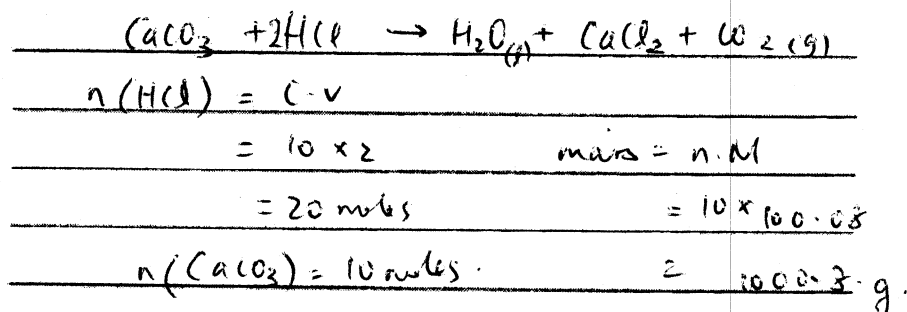 CaCO3 +2HCl → H2O(l) + CaCl2 + CO2(g)
n(HCl) = C.V
= 10 x 2 mass = n.M
= 20 moles = 10 x 100.08
n(CaCO3) = 10 moles. = 1000.8 g.